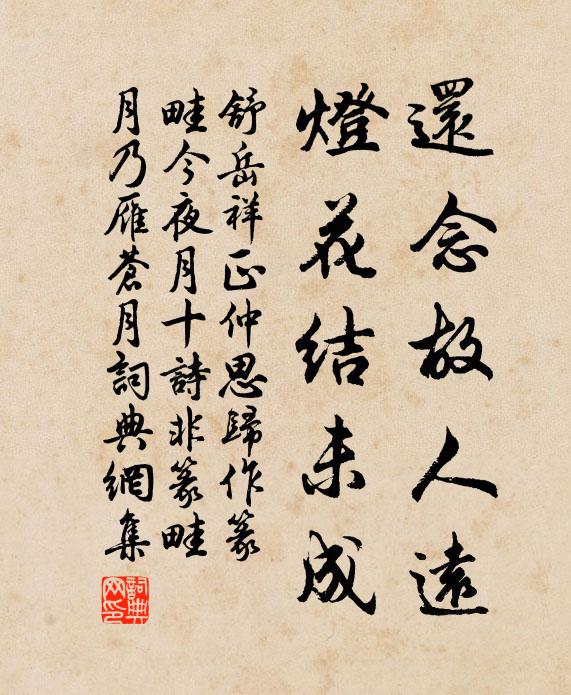 還念故人遠
燈花結未成
舒岳祥正仲思歸作篆
畦今夜月十詩非篆畦
月乃雁蒼月詞典網集
詞典网印